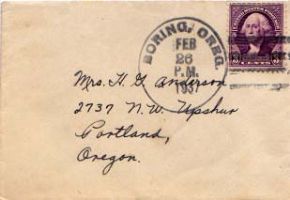 BORING, OREG.
FEB
26
P.M.
1937
Mrs. H. G. Anderson
2737 N.W. Upshur
Portland,
Oregon.